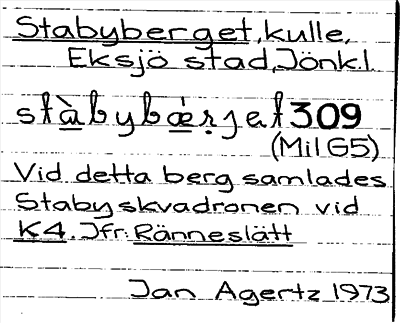 Stabyberget, kulle,
Eksjö stad, Jönk.l.
stàbybǽrjet 309
(Mil G5)
Vid detta berg samlades
Staby skvadronen vid
K4. Jfr: Ränneslätt
Jan Agertz 1973